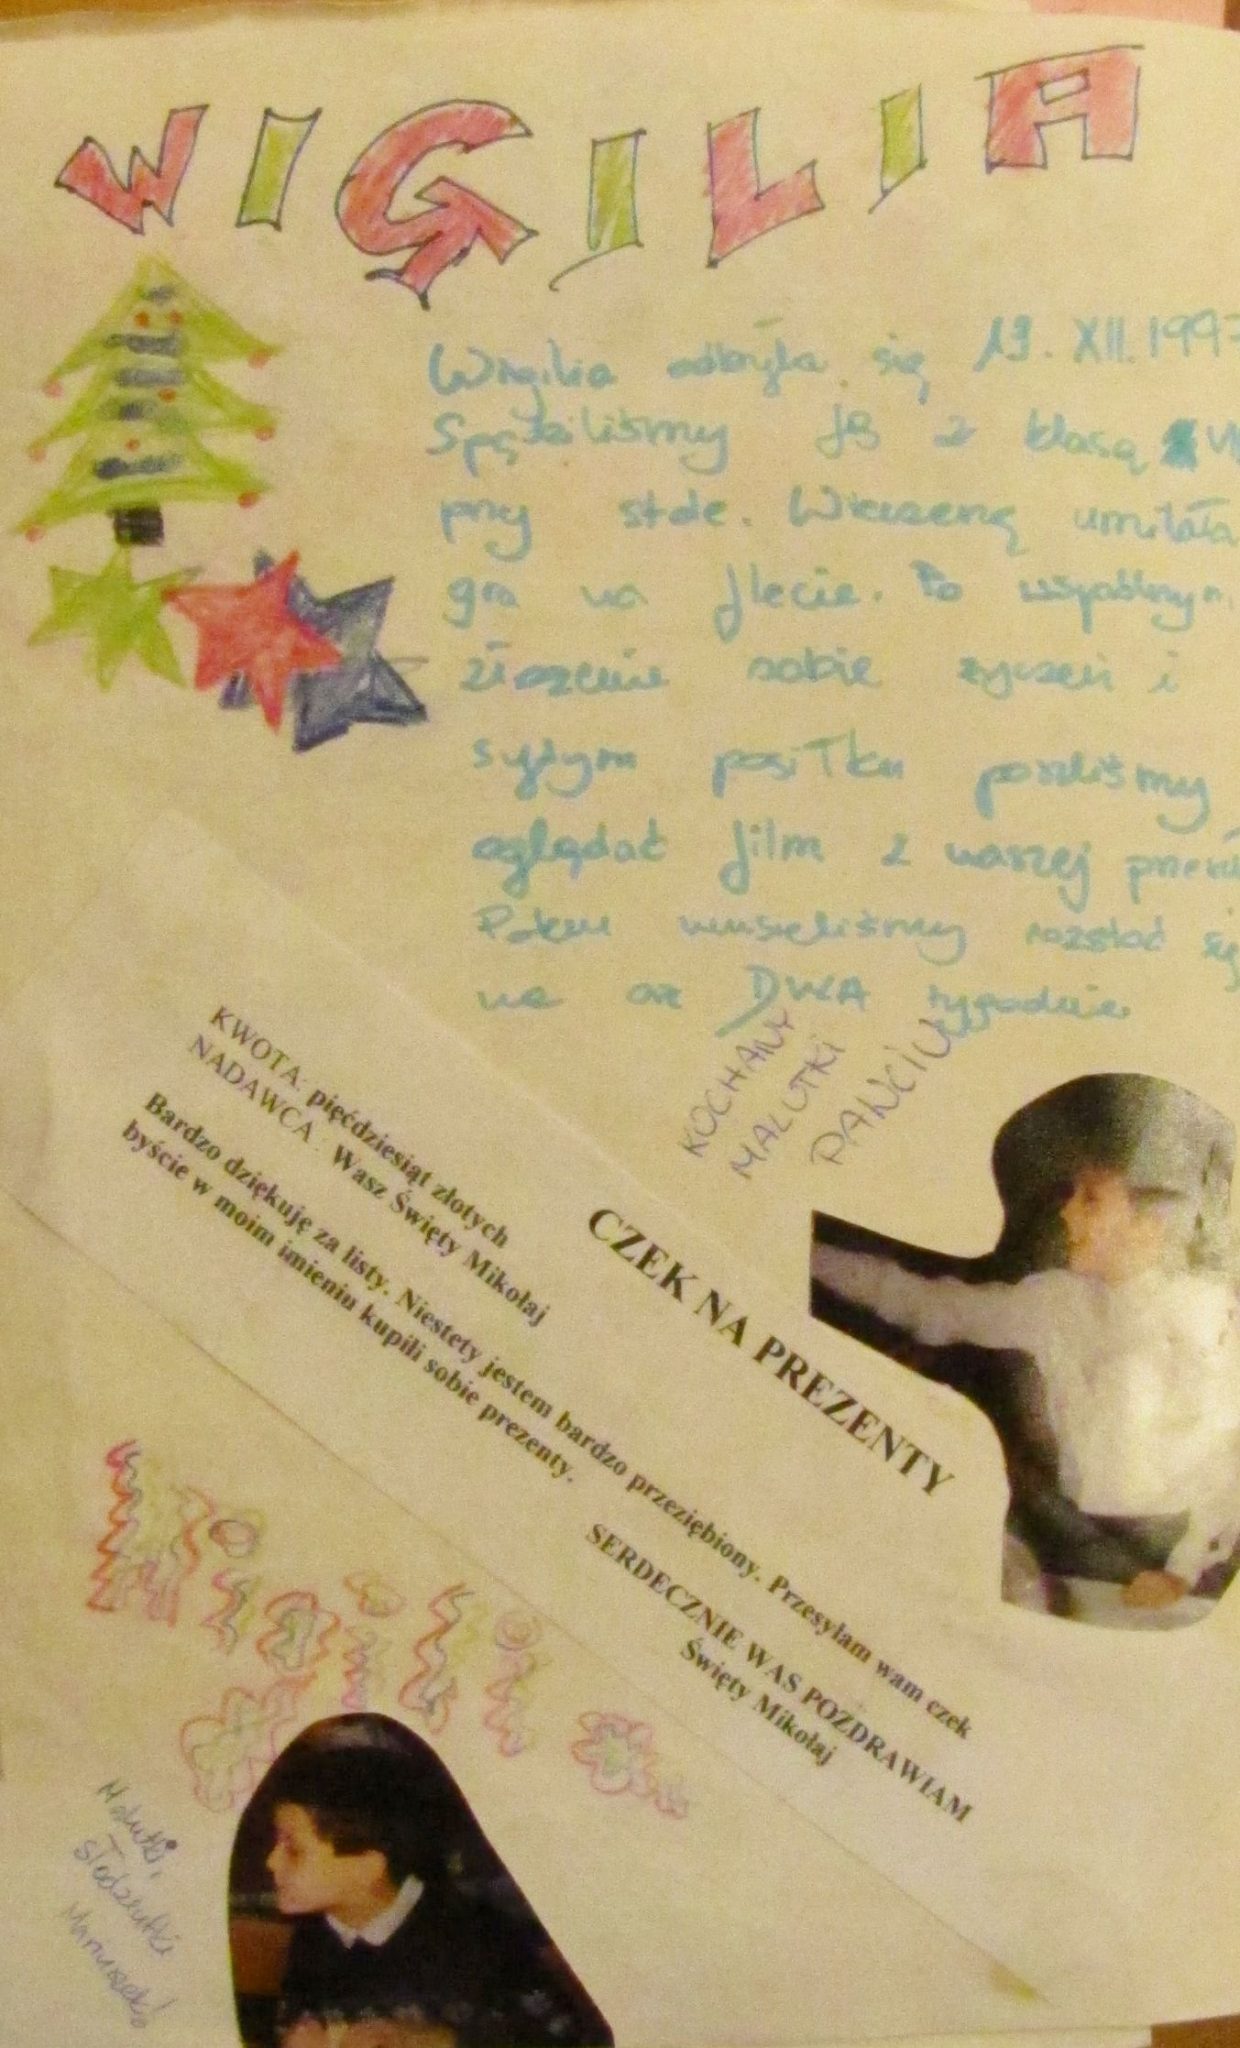 WIGILIA
Wigilia odbyła się 19. XII. 1997
Spędziliśmy ją z klasą
przy stole. Wieczerzę umilała
gra na flecie. Po wspólnym
złożeniu sobie życzeń i
sytym posiłku poszliśmy
oglądać film z naszej
Potem musieliśmy rozstać się
na aż DWA tygodnie
KOCHANY
MALUTKI
PAWCIU
KWOTA: pięćdziesiąt złotych
NADAWCA: Wasz Święty Mikołaj
Bardzo dziękuję za listy. Niestety jestem bardzo przeziębiony. Przesyłam wam czek
byście w moim imieniu kupili sobie prezenty.
CZEK NA PREZENTY
SERDECZNIE WAS POZDRAWIAM
Święty Mikołaj
Wigilia
Malutki,
słodziutki
Mariuszek!